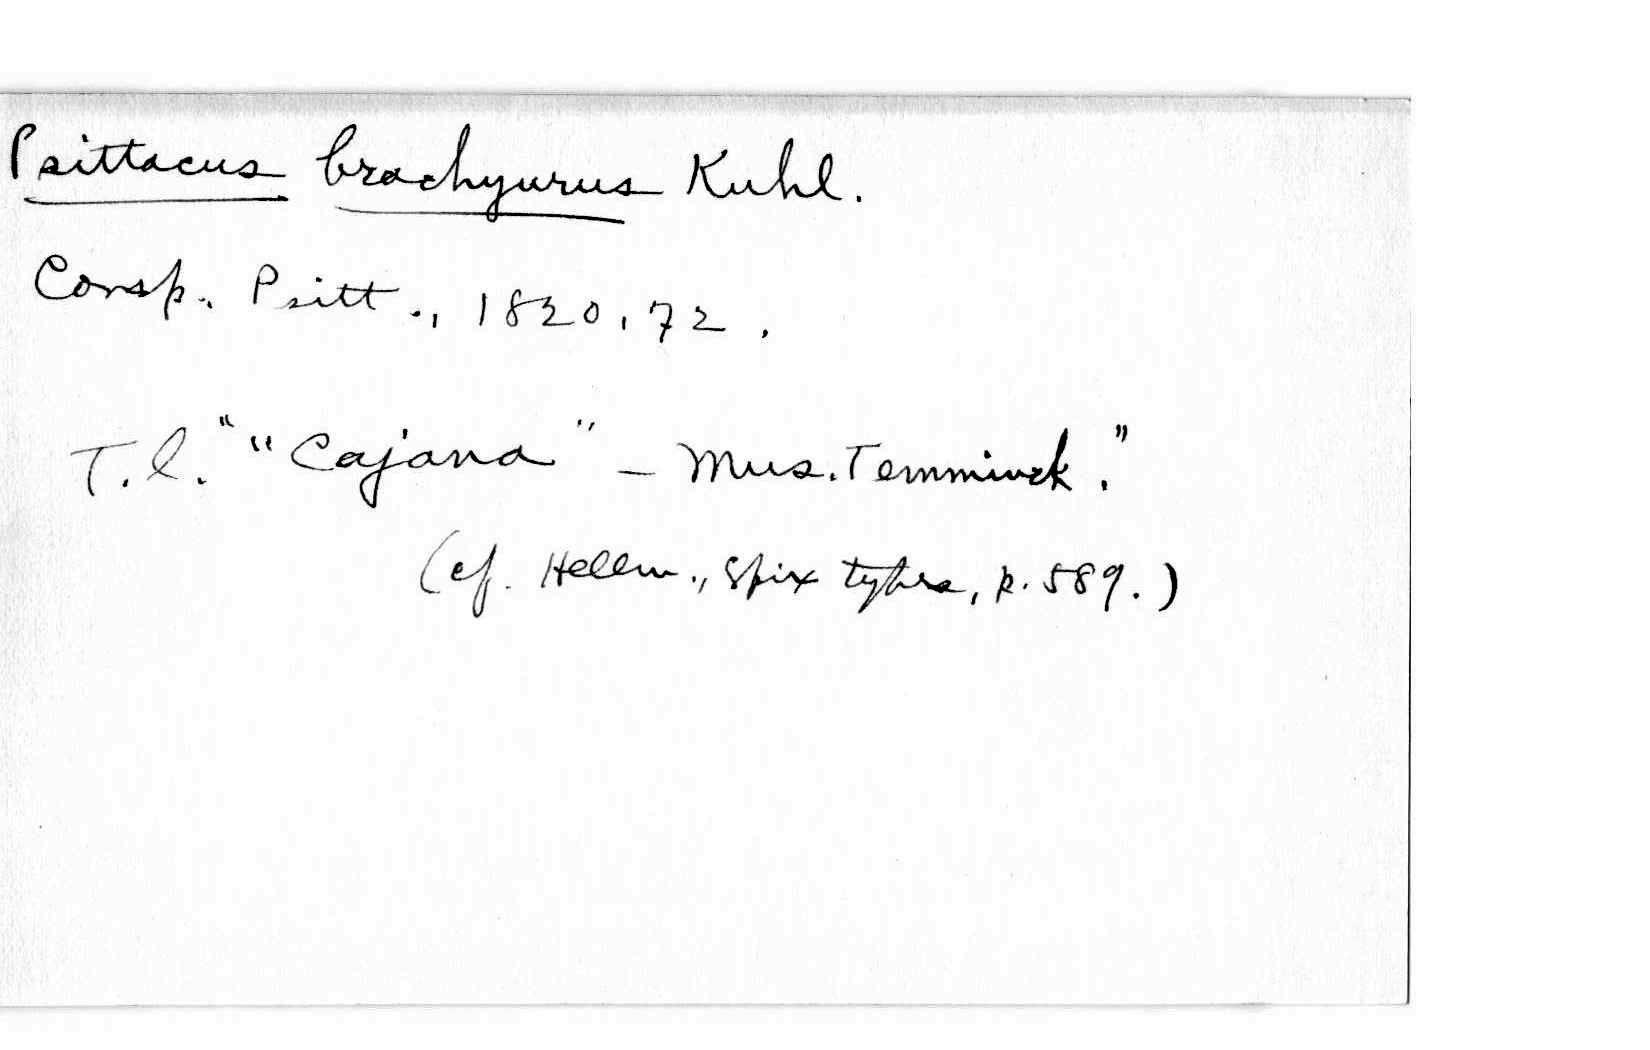 Psittacus brachyurus Kuhl.
Consp. Psitt., 1820, 72.
T.l. " "Cajana" - Mus. Temminck."
(cf. Hellm., Spix types, p. 589.)